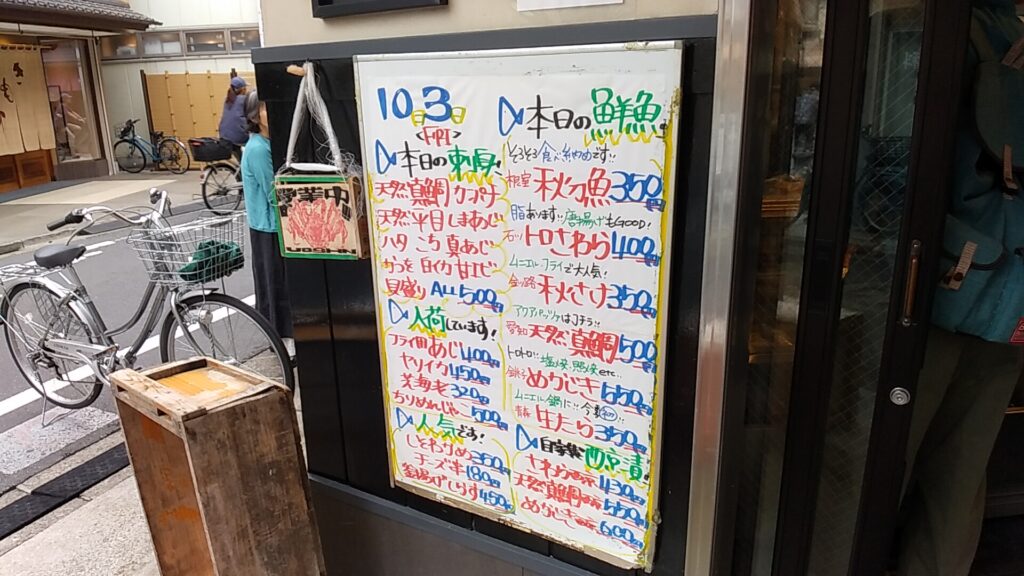 10日3日
<FRI>
本日の刺身!
天然真鯛 カンパチ
天然平目 しまあじ
ハタ こち 真あじ
かつを 白イカ 甘エビ
貝盛り ALL 500円
入荷しています!
フライ用 あじ 400円
ヤリイカ 450円
芝海老 320円
ちりめんじゃこ 500円
人気です!
しそわかめ 300円
チーズキ 180円
450円
本日の鮮魚!
そろそろ食べ納めです!!
根室 秋刀魚 350円
脂あります!! 唐揚げもGOOD!
トロさわら 400円
ムニエル・フライで大人気!
釧路 秋さけ 350円
アクアパッツァはコチラ!!
愛知 天然真鯛 500円
トロトロ!! 塩焼、照焼 etc..
銚子 めかじき 550円
ムニエル・鍋に!!
青森 生たら 350円
自家製 西京漬!
いわかま 450円
天然真鯛 550円
めかじき 600円
営業中